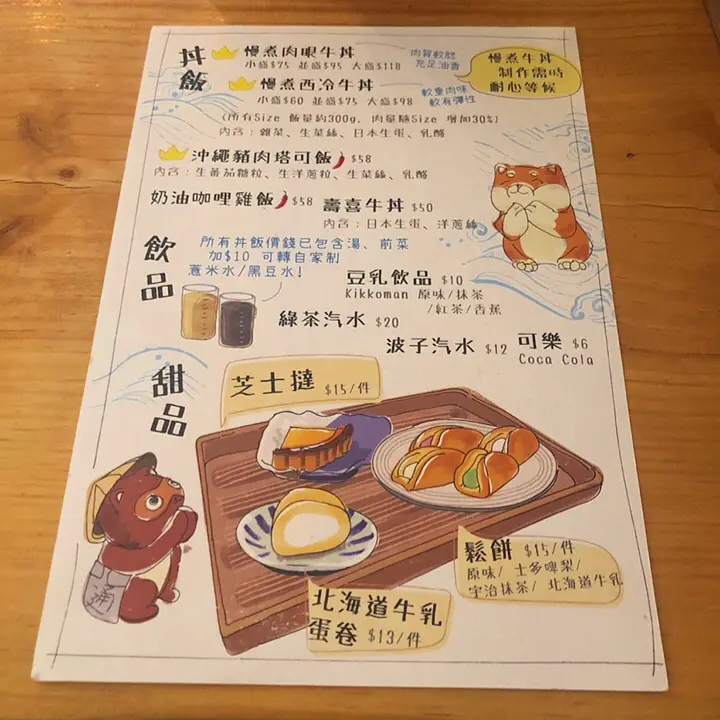 丼飯
慢煮肉眼牛丼
小盛$75 並盛$95 大盛$118
肉質軟腍
充足油香
慢煮西冷牛丼
小盛$60 並盛$75 大盛$98
較重肉味
較有彈性
慢煮牛丼
制作需時
耐心等候
(所有Size 飯量約300g, 肉量隨Size 增加30%)
內含：雜菜、生菜絲、日本生蛋、乳酪
沖繩豬肉塔可飯 $58
內含：生蕃茄糖粒、生洋蔥粒、生菜絲、乳酪
奶油咖哩雞飯 $58
壽喜牛丼 $50
內含：日本生蛋、洋蔥絲
飲品
所有丼飯價錢已包含湯、前菜
加$10 可轉自家制
薏米水/黑豆水!
豆乳飲品 $10
Kikkoman 原味/抹茶
/紅茶/香蕉
綠茶汽水 $20
波子汽水 $12
可樂 $6
Coca Cola
甜品
芝士撻 $15/件
鬆餅 $15/件
原味/ 士多啤梨/
宇治抹茶/ 北海道牛乳
北海道牛乳
蛋卷 $13/件